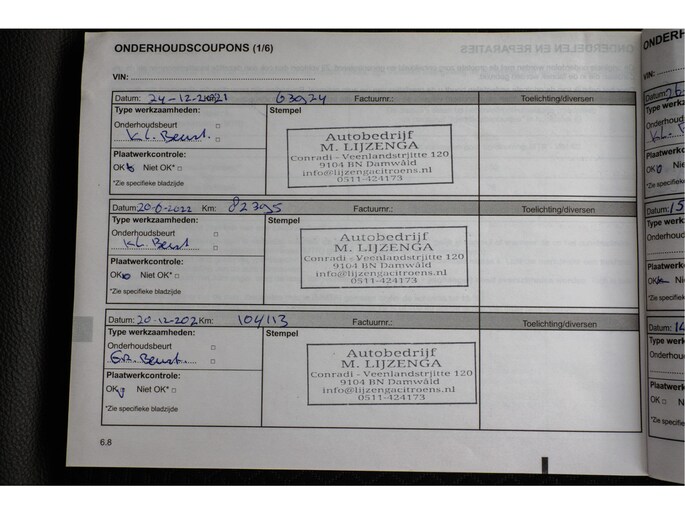 ONDERHOUDSCOUPONS (1/6)
VIN:
Datum: 24-12-2021 63924 Factuurnr.: Toelichting/diversen
Type werkzaamheden: Stempel
Onderhoudsbeurt
KL. Beurt.
Plaatwerkcontrole:
OK Niet OK*
*Zie specifieke bladzijde
Autobedrijf
M. LIJZENGA
Conradi - Veenlandstrjitte 120
9104 BN Damwâld
info@lijzengacitroens.nl
0511-424173
Datum: 20-6-2022 Km: 82395 Factuurnr.: Toelichting/diversen
Type werkzaamheden: Stempel
Onderhoudsbeurt
KL. Beurt
Plaatwerkcontrole:
OK Niet OK*
*Zie specifieke bladzijde
Autobedrijf
M. LIJZENGA
Conradi - Veenlandstrjitte 120
9104 BN Damwâld
info@lijzengacitroens.nl
0511-424173
Datum: 20-12-202 Km: 104113 Factuurnr.: Toelichting/diversen
Type werkzaamheden: Stempel
Onderhoudsbeurt
Gr. Beurt.
Plaatwerkcontrole:
OK Niet OK*
*Zie specifieke bladzijde
Autobedrijf
M. LIJZENGA
Conradi - Veenlandstrjitte 120
9104 BN Damwâld
info@lijzengacitroens.nl
0511-424173
6.8
ONDERH
VIN:
Datum:
Type werk
Onderhoud
Plaatwerkc
OK Nie
*Zie specifie
Datum: 15
Type werk
Onderhoud
Plaatwerkc
OK Nie
*Zie specifie
Datum: 14
Type werk
Onderhoud
Plaatwerkc
OK Nie
*Zie specifie